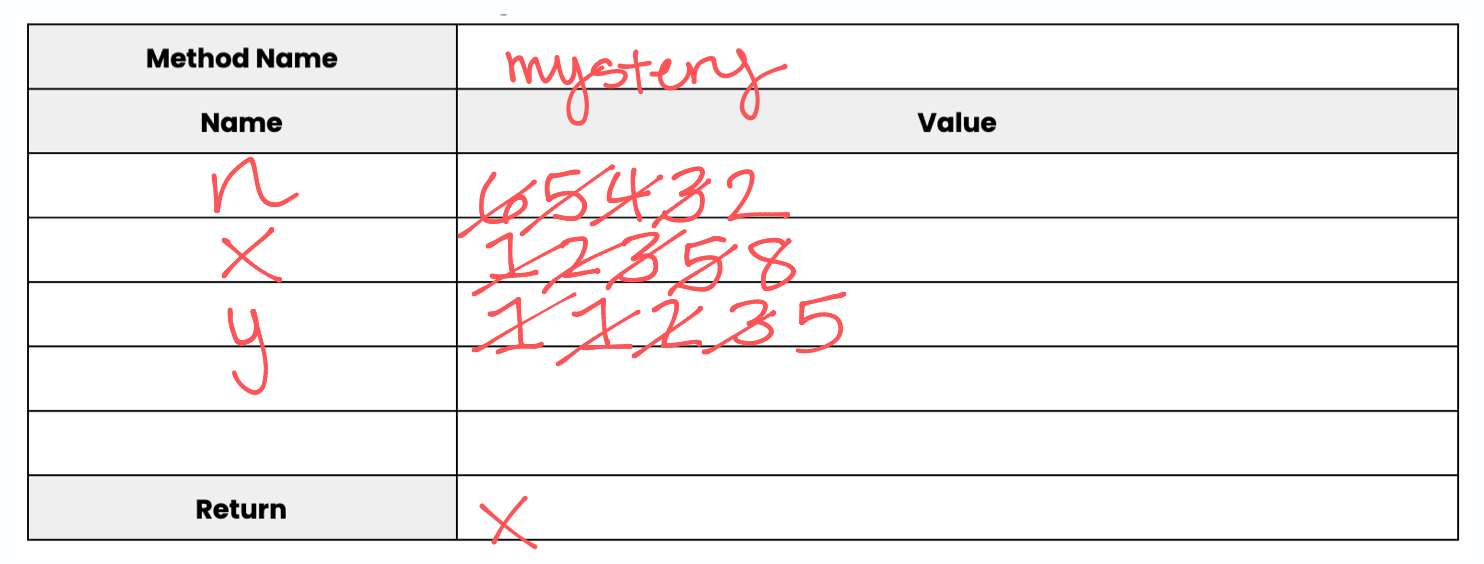 Method Name mystery
Name Value
n 6 5 4 3 2
x 1 2 3 5 8
y 1 1 2 3 5
Return x